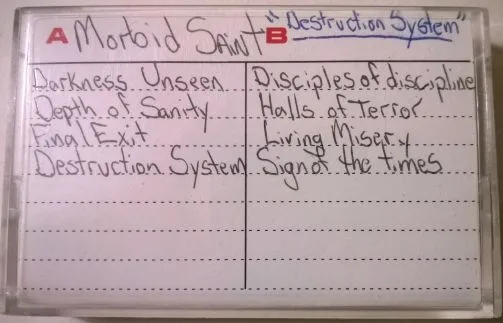 A Morbid Saint B "Destruction System"
Darkness Unseen
Depth of Sanity
Final Exit
Destruction System
Disciples of discipline
Halls of Terror
Living Misery
Sign of the times